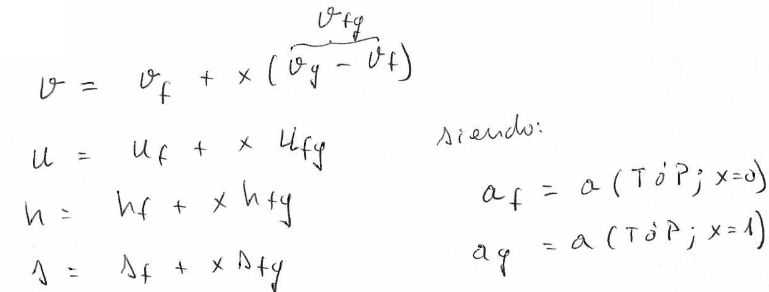 vfg
v = vf + x (vg - vf)
u = uf + x ufg
h = hf + x hfg
s = sf + x sfg
siendo:
af = a (T ó P; x=0)
ag = a (T ó P; x=1)